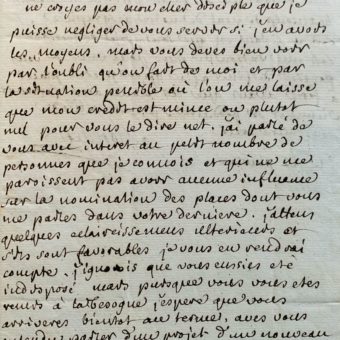 ne croyes pas mon cher disciple que je
puisse negliger de vous servir si j'en avois
les moyens, mais vous deves bien voir
par l'oubli qu'on fait de moi et par
la situation penible ou l'on me laisse
que mon credit est mince ou plutot
nul pour vous le dire net. j'ai parlé de
vous avec interet au petit nombre de
personnes que je connois et qui ne me
paroissent pas avoir aucune influence
sur la nomination des places dont vous
me parles dans votre derniere. j'attens
quelques eclaircissemens ulterieurs et
s'ils sont favorables je vous en rendrai
compte. j'ignorois que vous eussies eté
indisposé mais puisque vous vous etes
remis à la besogne j'espere que vous
arriveres bientot au terme, aves vous
entendu parler d'un projet d'un nouveau